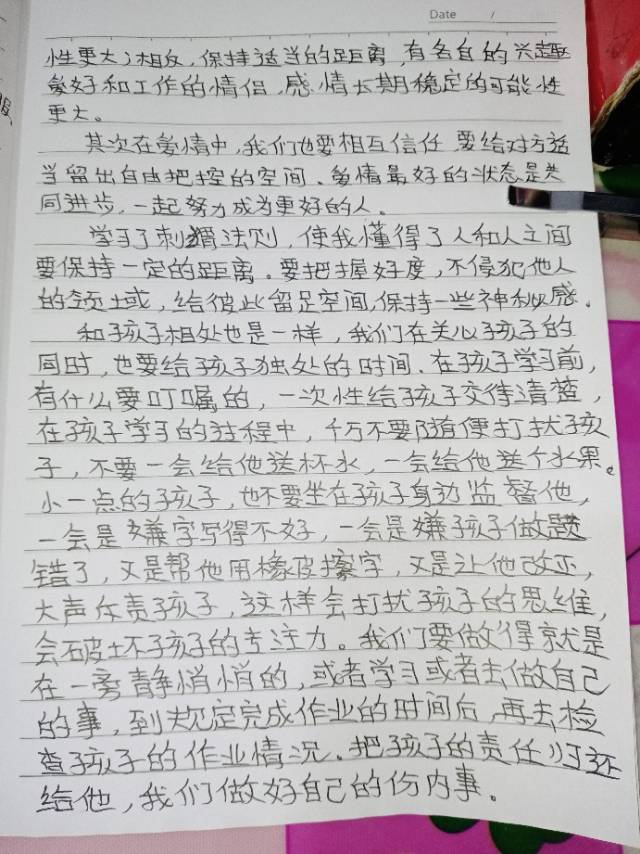 Date /
性更大；相反，保持适当的距离，有各自的兴趣
爱好和工作的情侣，感情长期稳定的可能性
更大。
其次在爱情中，我们也要相互信任，要给对方适
当留出自由把控的空间、爱情最好的状态是共
同进步，一起努力成为更好的人。
学习了刺猬法则，使我懂得了人和人之间
要保持一定的距离。要把握好度，不侵犯他人
的领域，给彼此留足空间，保持一些神秘感。
和孩子相处也是一样，我们在关心孩子的
同时，也要给孩子独处的时间、在孩子学习前，
有什么要叮嘱的，一次性给孩子交待清楚，
在孩子学习的过程中，千万不要随便打扰孩
子，不要一会给他送杯水，一会给他送个水果。
小一点的孩子，也不要坐在孩子身边监督他，
一会是嫌字写得不好，一会是嫌孩子做题
错了，又是帮他用橡皮擦字，又是让他改正，
大声斥责孩子，这样会打扰孩子的思维，
会破坏孩子的专注力。我们要做得就是
在一旁静悄悄的，或者学习或者去做自己
的事，到规定完成作业的时间后，再去检
查孩子的作业情况。把孩子的责任归还
给他，我们做好自己的份内事。